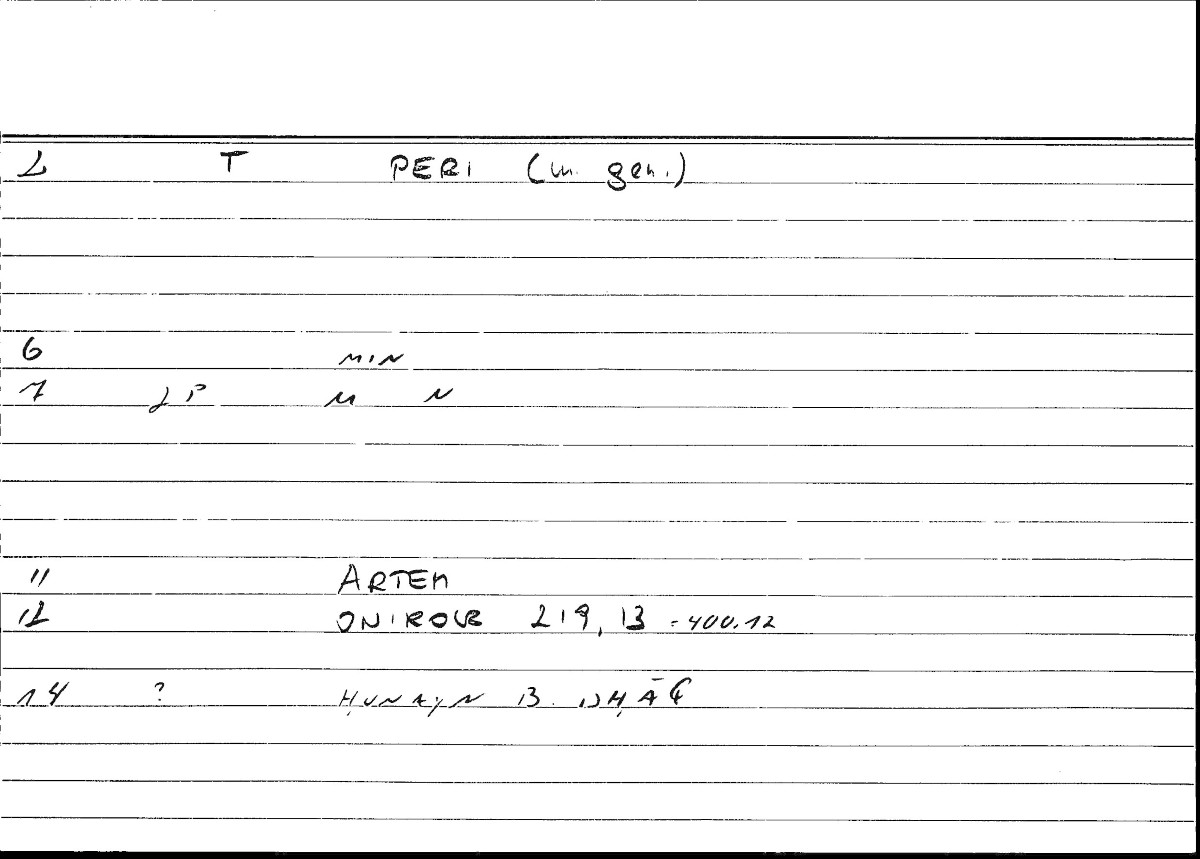 2 T PERI (m. gen.)
6 MIN
7 LP M N
11 ARTEM
12 ONIROCR 219, 13 = 400.12
14 ? ḤUNAYN B. ISḤĀQ